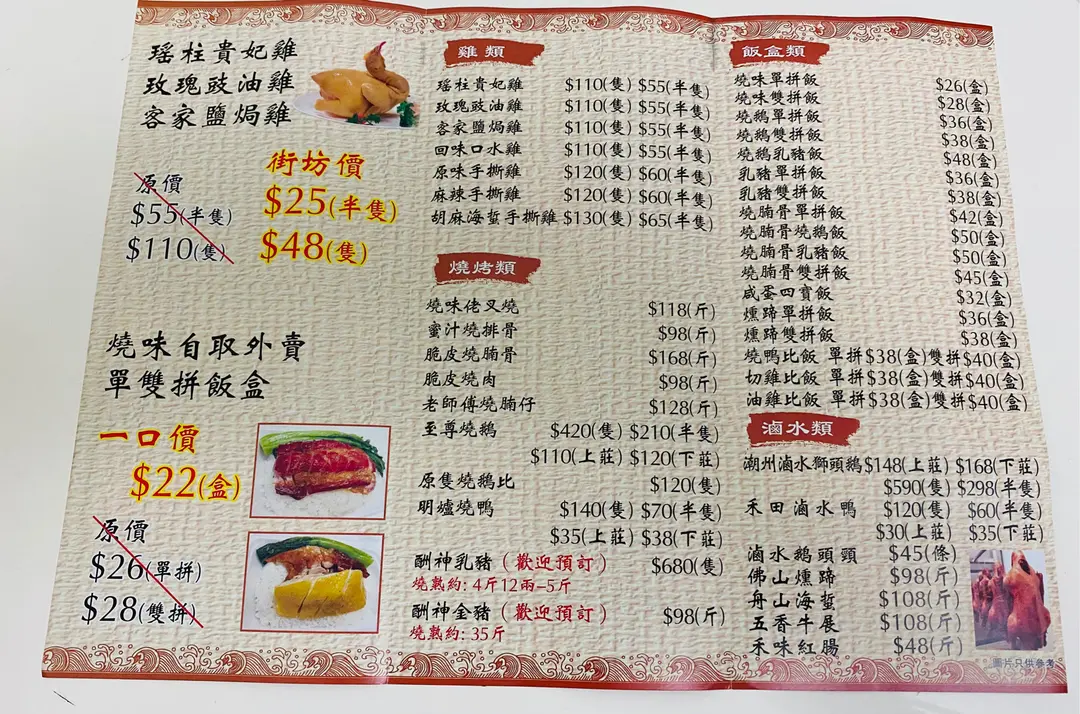 瑶柱貴妃雞
玫瑰豉油雞
客家鹽焗雞
街坊價
原價
$25(半隻)
$55(半隻)
$48(隻)
$110(隻)
燒味自取外賣
單雙拼飯盒
一口價
$22(盒)
原價
$26(單拼)
$28(雙拼)
雞類
瑶柱貴妃雞 $110(隻) $55(半隻)
玫瑰豉油雞 $110(隻) $55(半隻)
客家鹽焗雞 $110(隻) $55(半隻)
回味口水雞 $110(隻) $55(半隻)
原味手撕雞 $120(隻) $60(半隻)
麻辣手撕雞 $120(隻) $60(半隻)
胡麻海蜇手撕雞 $130(隻) $65(半隻)
燒烤類
燒味佬叉燒 $118(斤)
蜜汁燒排骨 $98(斤)
脆皮燒腩骨 $168(斤)
脆皮燒肉 $98(斤)
老師傅燒腩仔 $128(斤)
至尊燒鵝 $420(隻) $210(半隻)
$110(上莊) $120(下莊)
原隻燒鵝比 $120(隻)
明爐燒鴨 $140(隻) $70(半隻)
$35(上莊) $38(下莊)
酬神乳豬(歡迎預訂) $680(隻)
燒熟約: 4斤12兩–5斤
酬神金豬(歡迎預訂) $98(斤)
燒熟約: 35斤
飯盒類
燒味單拼飯 $26(盒)
燒味雙拼飯 $28(盒)
燒鵝單拼飯 $36(盒)
燒鵝雙拼飯 $38(盒)
燒鵝乳豬飯 $48(盒)
乳豬單拼飯 $36(盒)
乳豬雙拼飯 $38(盒)
燒腩骨單拼飯 $42(盒)
燒腩骨燒鵝飯 $50(盒)
燒腩骨乳豬飯 $50(盒)
燒腩骨雙拼飯 $45(盒)
咸蛋四寶飯 $32(盒)
燻蹄單拼飯 $36(盒)
燻蹄雙拼飯 $38(盒)
燒鴨比飯 單拼$38(盒)雙拼$40(盒)
切雞比飯 單拼$38(盒)雙拼$40(盒)
油雞比飯 單拼$38(盒)雙拼$40(盒)
滷水類
潮州滷水獅頭鵝$148(上莊) $168(下莊)
$590(隻) $298(半隻)
禾田滷水鴨 $120(隻) $60(半隻)
$30(上莊) $35(下莊)
滷水鵝頭頸 $45(條)
佛山燻蹄 $98(斤)
舟山海蜇 $108(斤)
五香牛展 $108(斤)
禾味紅腸 $48(斤)
圖片只供參考